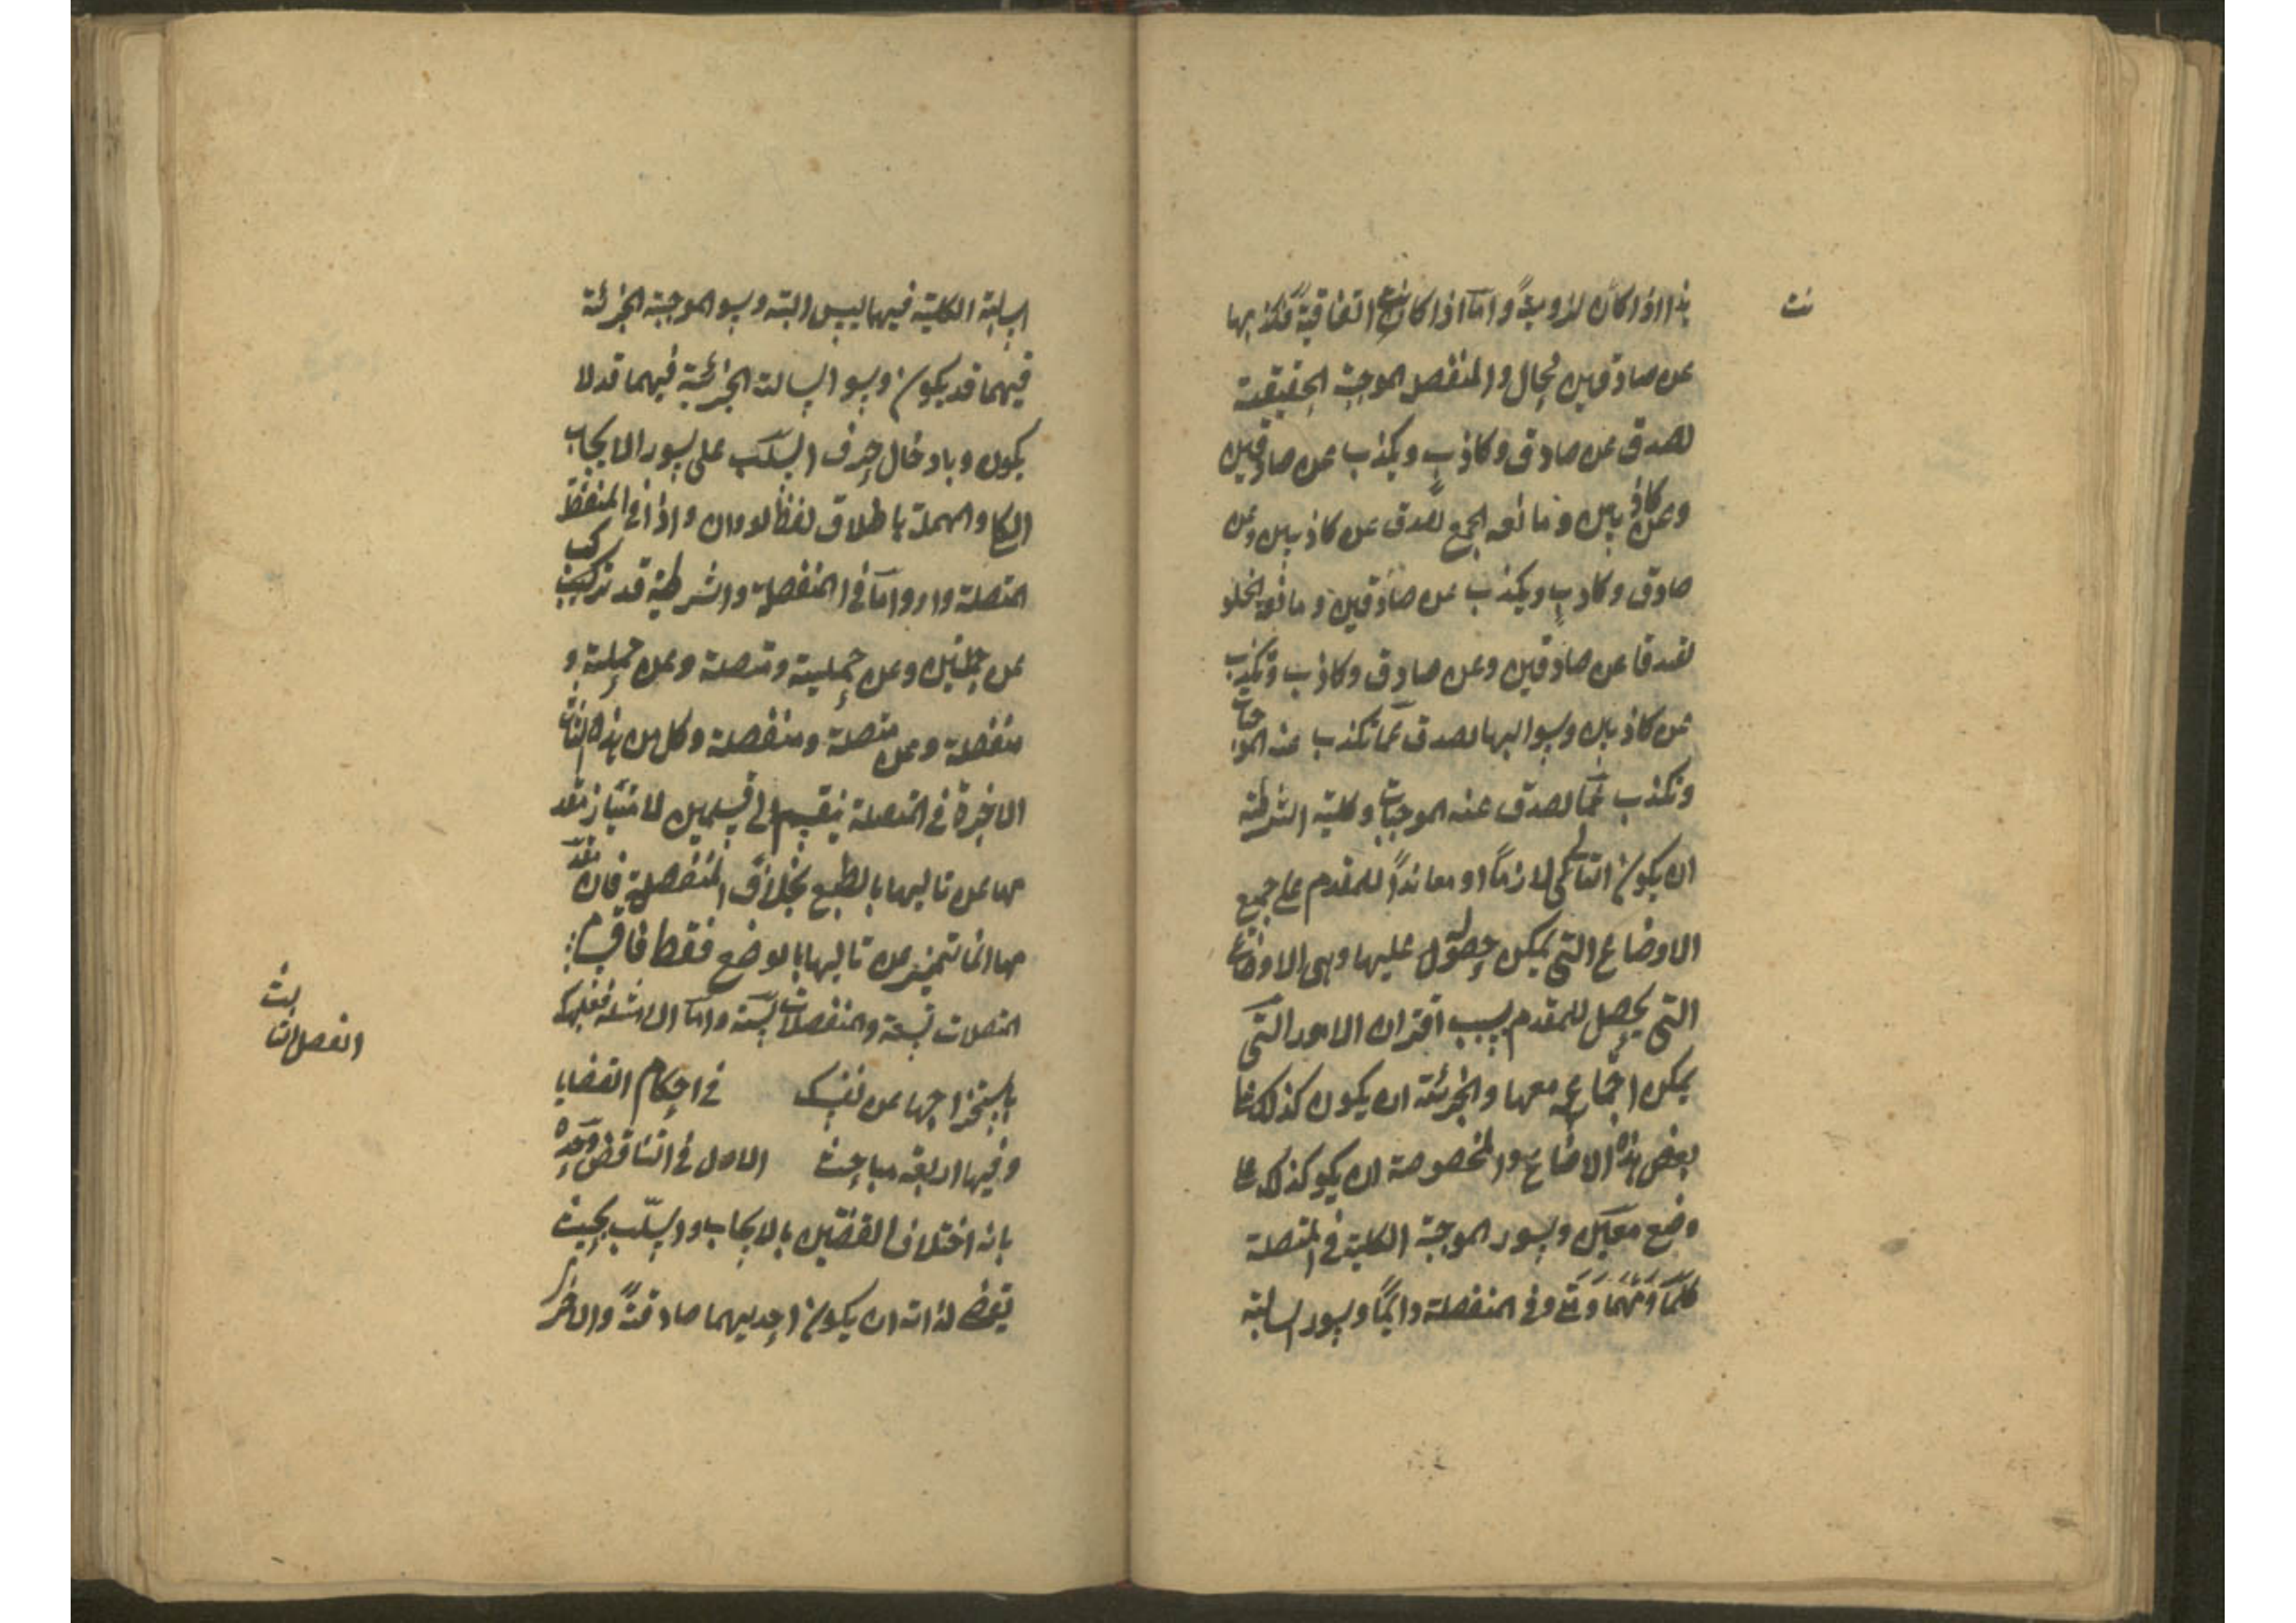 نت
هذا اذا كان لزومية واما اذا كانت اتفاقية فكذبها
عن صادقين محال والمنفصل الموجبة الحقيقية
تصدق عن صادق وكاذب ويكذب عن صادقين
وعن كاذبين ومانعه الجمع تصدق عن كاذبين وعن
صادق وكاذب ويكذب عن صادقين ومانعة الخلو
تصدقا عن صادقين وعن صادق وكاذب وتكذب
عن كاذبين وسوالبها تصدق عما تكذب عنه الموجبات
وتكذب عما تصدق عنه الموجبات وكلية الشرطية
ان يكون التالي لازماً او معانداً للمقدم على جميع
الاوضاع التي يمكن حصوله عليها وهى الاوضاع
التي يحصل للمقدم بسبب اقتران الامور التي
يمكن اجتماعه معها والجزئية ان يكون كذلك على
بعض هذه الاوضاع والمخصوصة ان يكو كذلك على
وضع معين وسور الموجبة الكلية في المتصلة
كلما ومهما ومتى وفى المنفصلة دايماً وسور السالبة
السالبة الكلية فيهما ليس البتة وسو الموجبة الجزئة
فيهما قد يكون وسو السالبة الجزئية فيهما قد لا
يكون وبادخال حرف السلب على سور الايجاب
الكلي والمهملة باطلاق لفظ لو وان واذا في المنفصلة
المتصلة واو واما في المنفصلة والشرطية قد تركب
عن حمليتين وعن حملية ومتصلة وعن حملية و
منفصلة وعن متصلة ومنفصلة وكل من هذه الثلث
الاخيرة في المتصلة ينقسم الى قسمين لامتياز مقد
مها عن تاليها بالطبع بخلاف المنفصلة فان مقد
مها انما تتميز عن تاليها بالوضع فقط فاقسام
المتصلات تسعة والمنفصلات ستة واما الامثلة فعليك
باستخراجها عن نفسك في احكام القضايا
الفصل الثالث
وفيها اربعة مباحث الاول في التناقض وحدوه
بانه اختلاف القضيتين بالايجاب والسلب بحيث
يقتضى لذاته ان يكون احديهما صادقة والاخر